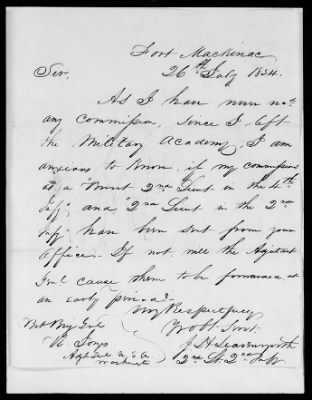 Fort Mackinac
26th July 1834.
Sir.
As I have never recd
any commission, since I left
the Military Academy, I am
anxious to know, if my commissions
as a Brevet 2nd Lieut in the 4th
Infy, and 2nd Lieut in the 2nd
Infy have been sent from your
Office. If not, will the Adjutant
Genl cause them to be forwarded, at
an early period.
Very Respectfuly
Yr Obt. Servt.
J H Leavenworth
2nd Lt. 2nd Infy
Bvt Brig Genl
R. Jones
Adjt Genl U S A
Washington